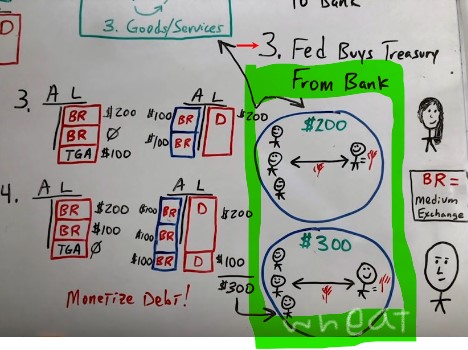 To Bank
D
3. Goods/Services
3. Fed Buys Treasury
From Bank
3.
A L
BR $200
BR Ø
TGA $100
A L
$100 BR D $200
$100 BR
$200
BR =
medium
Exchange
4.
A L
BR $200
BR $100
TGA Ø
A L
$100 BR D $200
$100 BR
$100 BR D $100
$300
$300
Monetize Debt!
wheat